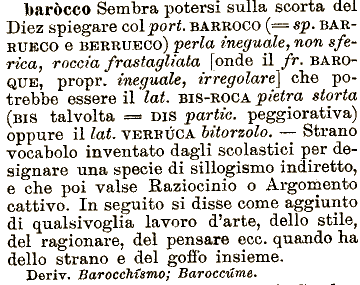 baròcco Sembra potersi sulla scorta del
Diez spiegare col port. BARROCO (= sp. BAR-
RUECO e BERRUECO) perla ineguale, non sfe-
rica, roccia frastagliata [onde il fr. BARO-
QUE, propr. ineguale, irregolare] che po-
trebbe essere il lat. BIS-ROCA pietra storta
(BIS talvolta = DIS partic. peggiorativa)
oppure il lat. VERRÚCA bitorzolo. — Strano
vocabolo inventato dagli scolastici per de-
signare una specie di sillogismo indiretto,
e che poi valse Raziocinio o Argomento
cattivo. In seguito si disse come aggiunto
di qualsivoglia lavoro d'arte, dello stile,
del ragionare, del pensare ecc. quando ha
dello strano e del goffo insieme.
Deriv. Barocchísmo; Baroccúme.